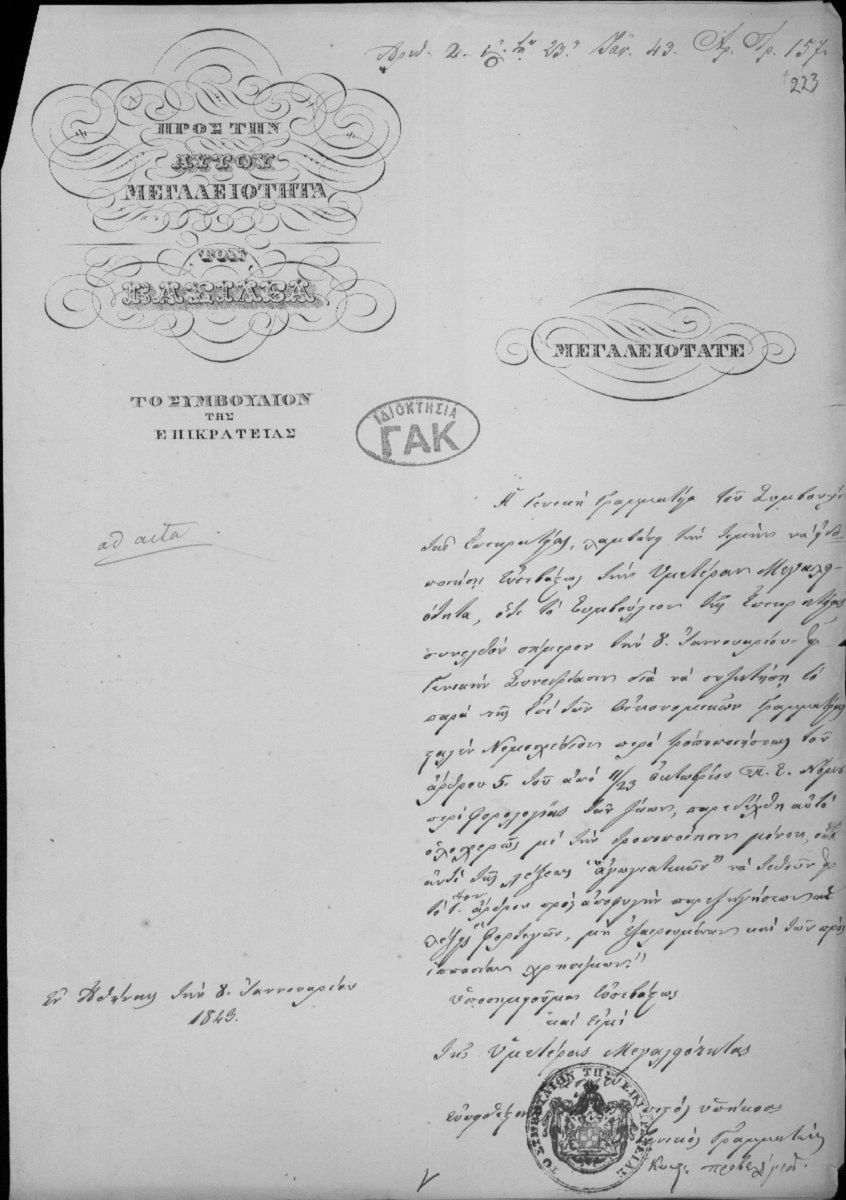 Ἀριθ. 2. 23. Ἰαν. 43. Ἀρ. Πρ. 157.
223
ΠΡΟΣ ΤΗΝ
ΑΥΤΟΥ
ΜΕΓΑΛΕΙΟΤΗΤΑ
ΤΟΝ
ΒΑΣΙΛΕΑ
ΜΕΓΑΛΕΙΟΤΑΤΕ
ΤΟ ΣΥΜΒΟΥΛΙΟΝ
ΤΗΣ
ΕΠΙΚΡΑΤΕΙΑΣ
ΙΔΙΟΚΤΗΣΙΑ
ΓΑΚ
ad acta
Ἡ Γενικὴ Γραμματεία τοῦ Συμβουλίου
τῆς Ἐπικρατείας, λαμβάνει τὴν τιμὴν νὰ
εὐσεβάστως τὴν Ὑμετέραν Μεγαλει-
ότητα, ὅτι τὸ Συμβούλιον τῆς Ἐπικρατείας
συνελθὸν σήμερον τὴν 8. Ἰαννουαρίου
Γενικὴν Συνεδρίασιν διὰ νὰ συζητήσῃ τὸ
παρὰ τῆς ἐπὶ τῶν Οἰκονομικῶν Γραμματείας
Νομοσχέδιον περὶ τροποποιήσεως τοῦ
ἄρθρου 5. τοῦ ἀπὸ 11/23 Ὀκτωβρίου π. ἔ. Νόμου
περὶ φορολογίας τῶν ζώων, παρεδέχθη αὐτὸ
ὁλοσχερῶς μὲ τὴν τροποποίησιν μόνον,
ἀντὶ τῆς λέξεως "ἀγωγιατικῶν" νὰ τεθοῦν
τὸ ἄρθρον πρὸς ἀποφυγὴν παρεξηγήσεως αἱ
λέξεις "φορτηγῶν, μὴ ἐξαιρουμένων καὶ τῶν πρὸς
ἱππασίαν χρησίμων."
Ὑποσημειοῦμαι εὐσεβάστως
καὶ εἰμὶ
τῆς Ὑμετέρας Μεγαλειότητος
Ἐν Ἀθήναις τὴν 8. Ἰαννουαρίου
1843.
ΤΟ ΣΥΜΒΟΥΛΙΟΝ ΤΗΣ ΕΠΙΚΡΑΤΕΙΑΣ
ὑπήκοος
Γραμματεὺς